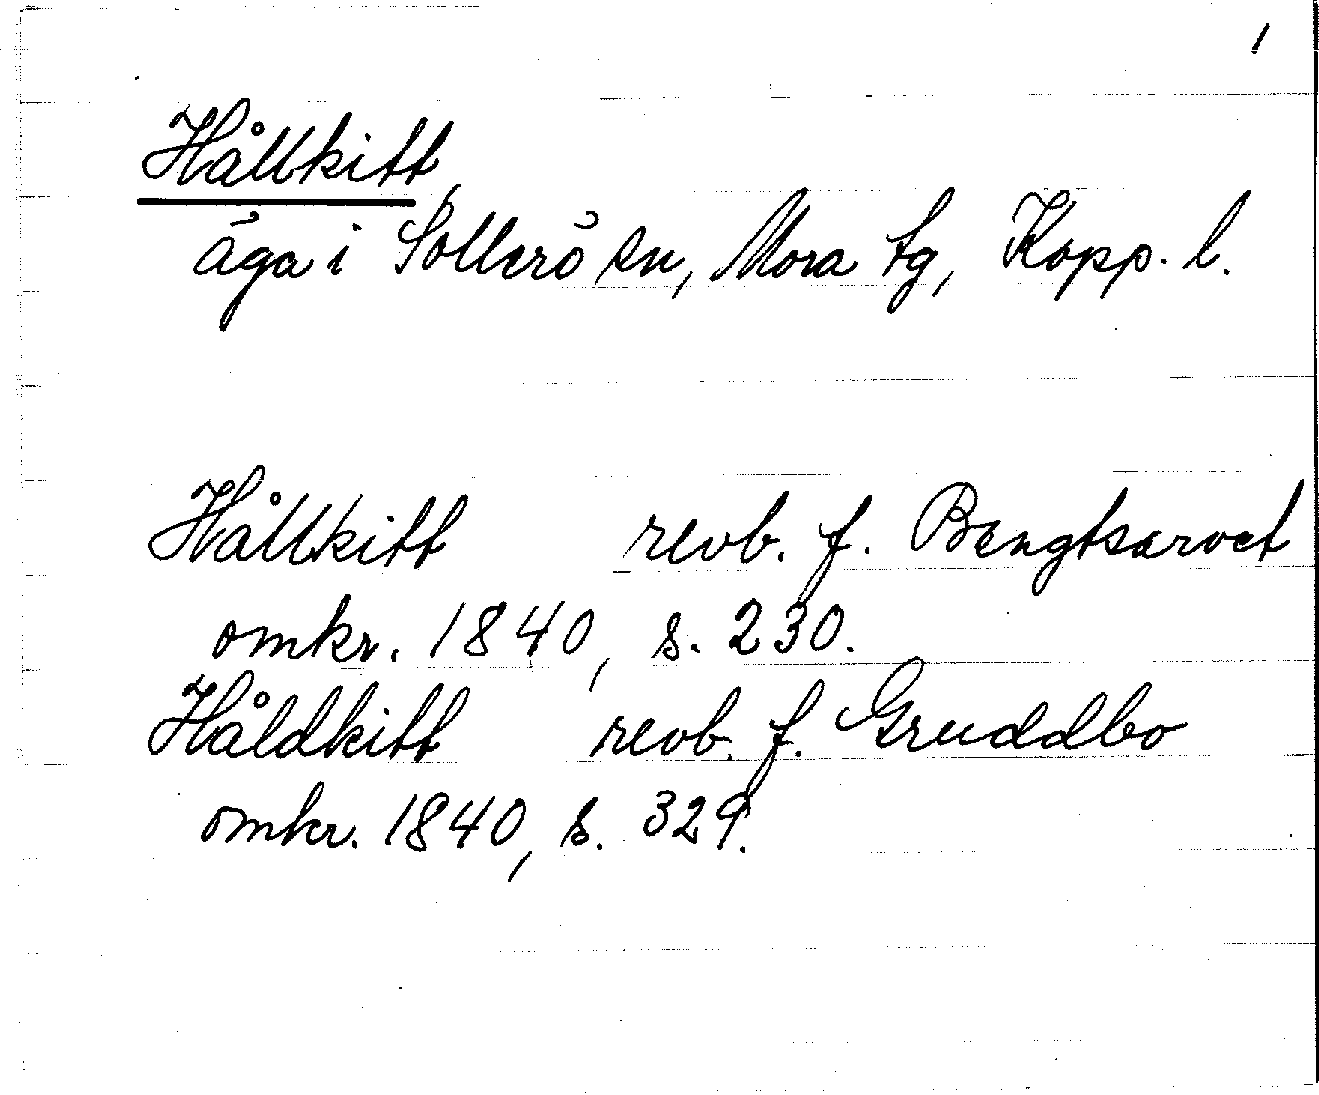 1
Hållkitt,
äga i Sollerö sn, Mora tg, Kopp. l.
Hållkitt revb. f. Bengtsarvet
omkr. 1840, s. 230.
Håldkitt revb. f. Gruddbo
omkr. 1840, s. 329.